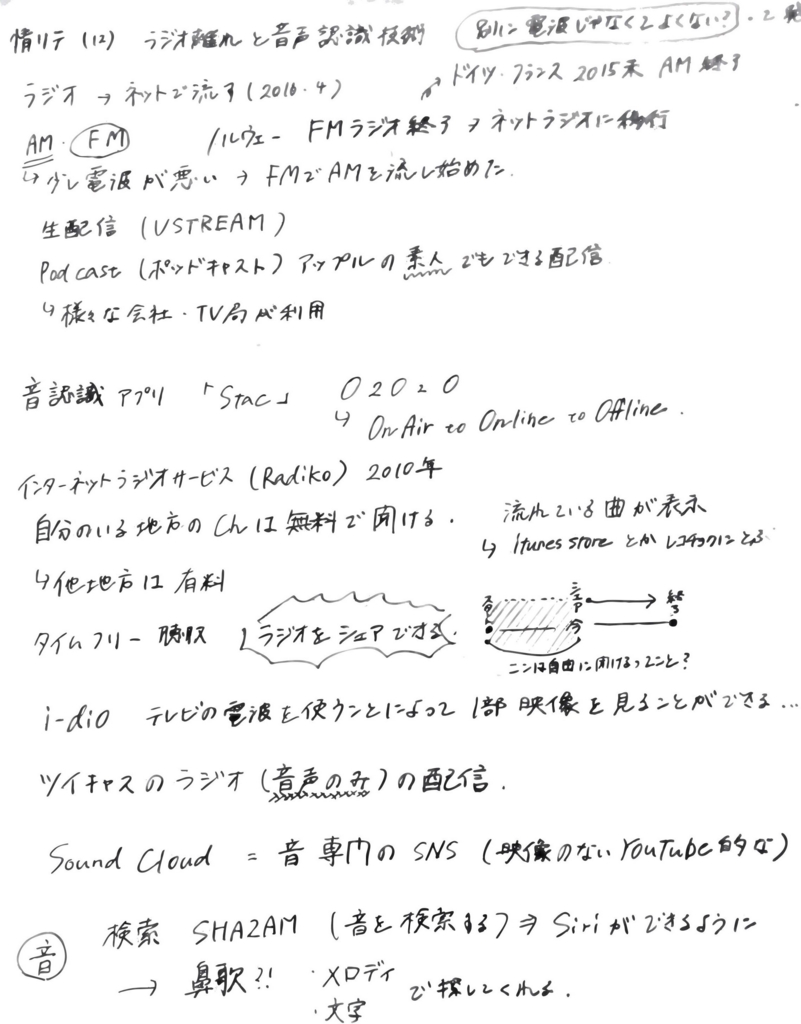 情リテ (12) ラジオ離れと音声認識技術
別に電波じゃなくてよくない?
ラジオ → ネットで流す (2016.4)
ドイツ・フランス 2015末 AM 終了
AM・FM
ノルウェー FMラジオ終了 → ネットラジオに移行
↳ 少し電波が悪い → FMでAMを流し始めた.
生配信 (USTREAM)
Podcast (ポッドキャスト) アップルの素人でもできる配信
↳ 様々な会社・TV局が利用
音認識アプリ 「Stac」 O2O2O
↳ On Air to Online to Offline.
インターネットラジオサービス (Radiko) 2010年
自分のいる地方のChは無料で聞ける.
流れている曲が表示
↳ itunes store とか レコチョクにとぶ
↳ 他地方は有料
タイムフリー聴取
ラジオをシェアできる.
シェア
今
終了
ここは自由に聞けるってこと?
i-dio テレビの電波を使うことによって 1部 映像を見ることができる…
ツイキャスのラジオ (音声のみ) の配信.
Sound Cloud = 音専門のSNS (映像のないYouTube的な)
音
検索 SHAZAM (音を検索する) ⇒ Siriができるように
→ 鼻歌?!
・メロディ
・文字
で探してくれる.